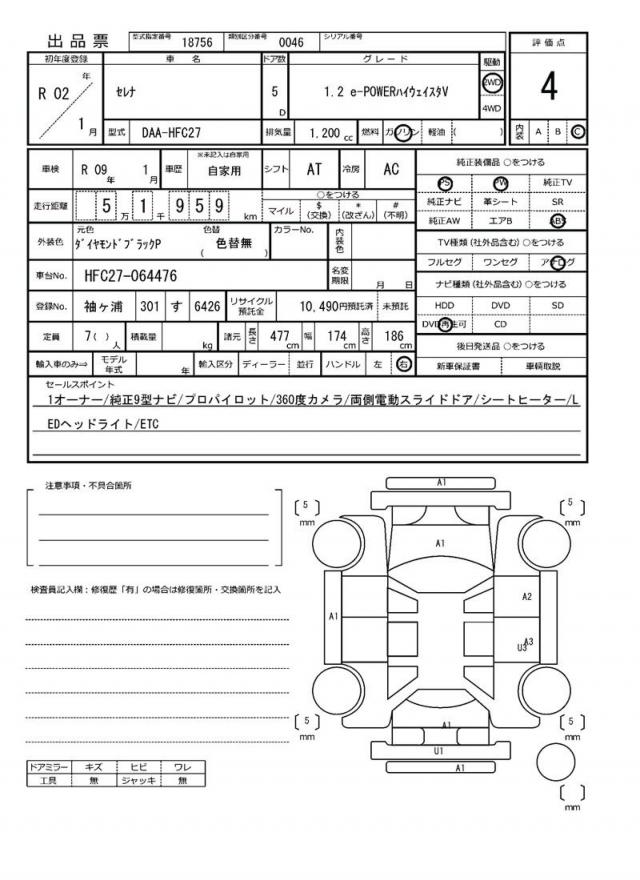 出品票 型式指定番号 18756 類別区分番号 0046 シリアル番号
初年度登録 車名 ドア数 グレード 駆動 評価点
R 02 年 1月 セレナ 5 D 1.2 e-POWERハイウェイスタV 2WD 4WD 4
型式 DAA-HFC27 排気量 1.200 cc 燃料 ガソリン 軽油 ( ) 内装 A B C
車検 R 09 年 1 月 車歴 ※未記入は自家用 自家用 シフト AT 冷房 AC
純正装備品 ○をつける
PS PW 純正TV
走行距離 5 万 1 千 9 5 9 km ○をつける マイル $(交換) *(改ざん) #(不明)
純正ナビ 革シート SR
純正AW エアB ABS
外装色 元色 ダイヤモンドブラックP 色替 ( 色替無 ) カラーNo. 内装色
TV種類 (社外品含む) ○をつける
フルセグ ワンセグ アナログ
車台No. HFC27-064476 名変期限 月 日
ナビ種類 (社外品含む) ○をつける
登録No. 袖ヶ浦 301 す 6426 リサイクル預託金 10,490円預託済 未預託
HDD DVD SD
DVD再生可 CD
定員 7( ) 人 積載量 kg 諸元 長さ 477 cm 幅 174 cm 高さ 186 cm
後日発送品 ○をつける
輸入車のみ⇒ モデル年式 年 輸入区分 ディーラー 並行 ハンドル 左 右
新車保証書 車輌取説
セールスポイント
1オーナー/純正9型ナビ/プロパイロット/360度カメラ/両側電動スライドドア/シートヒーター/L
EDヘッドライト/ETC
注意事項・不具合箇所
検査員記入欄：修復歴「有」の場合は修復箇所・交換箇所を記入
A1
5 mm
5 mm
A1
A1
A2
A3
U3
5 mm
5 mm
A1
U1
A1
mm
ドアミラー キズ ヒビ ワレ
工具 無 ジャッキ 無